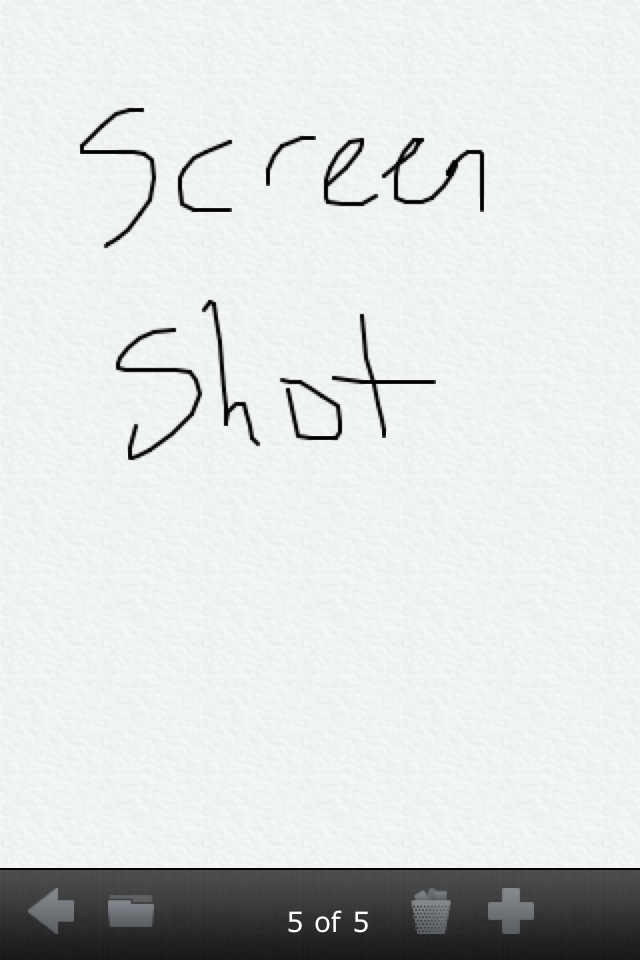 Screen
Shot
5 of 5